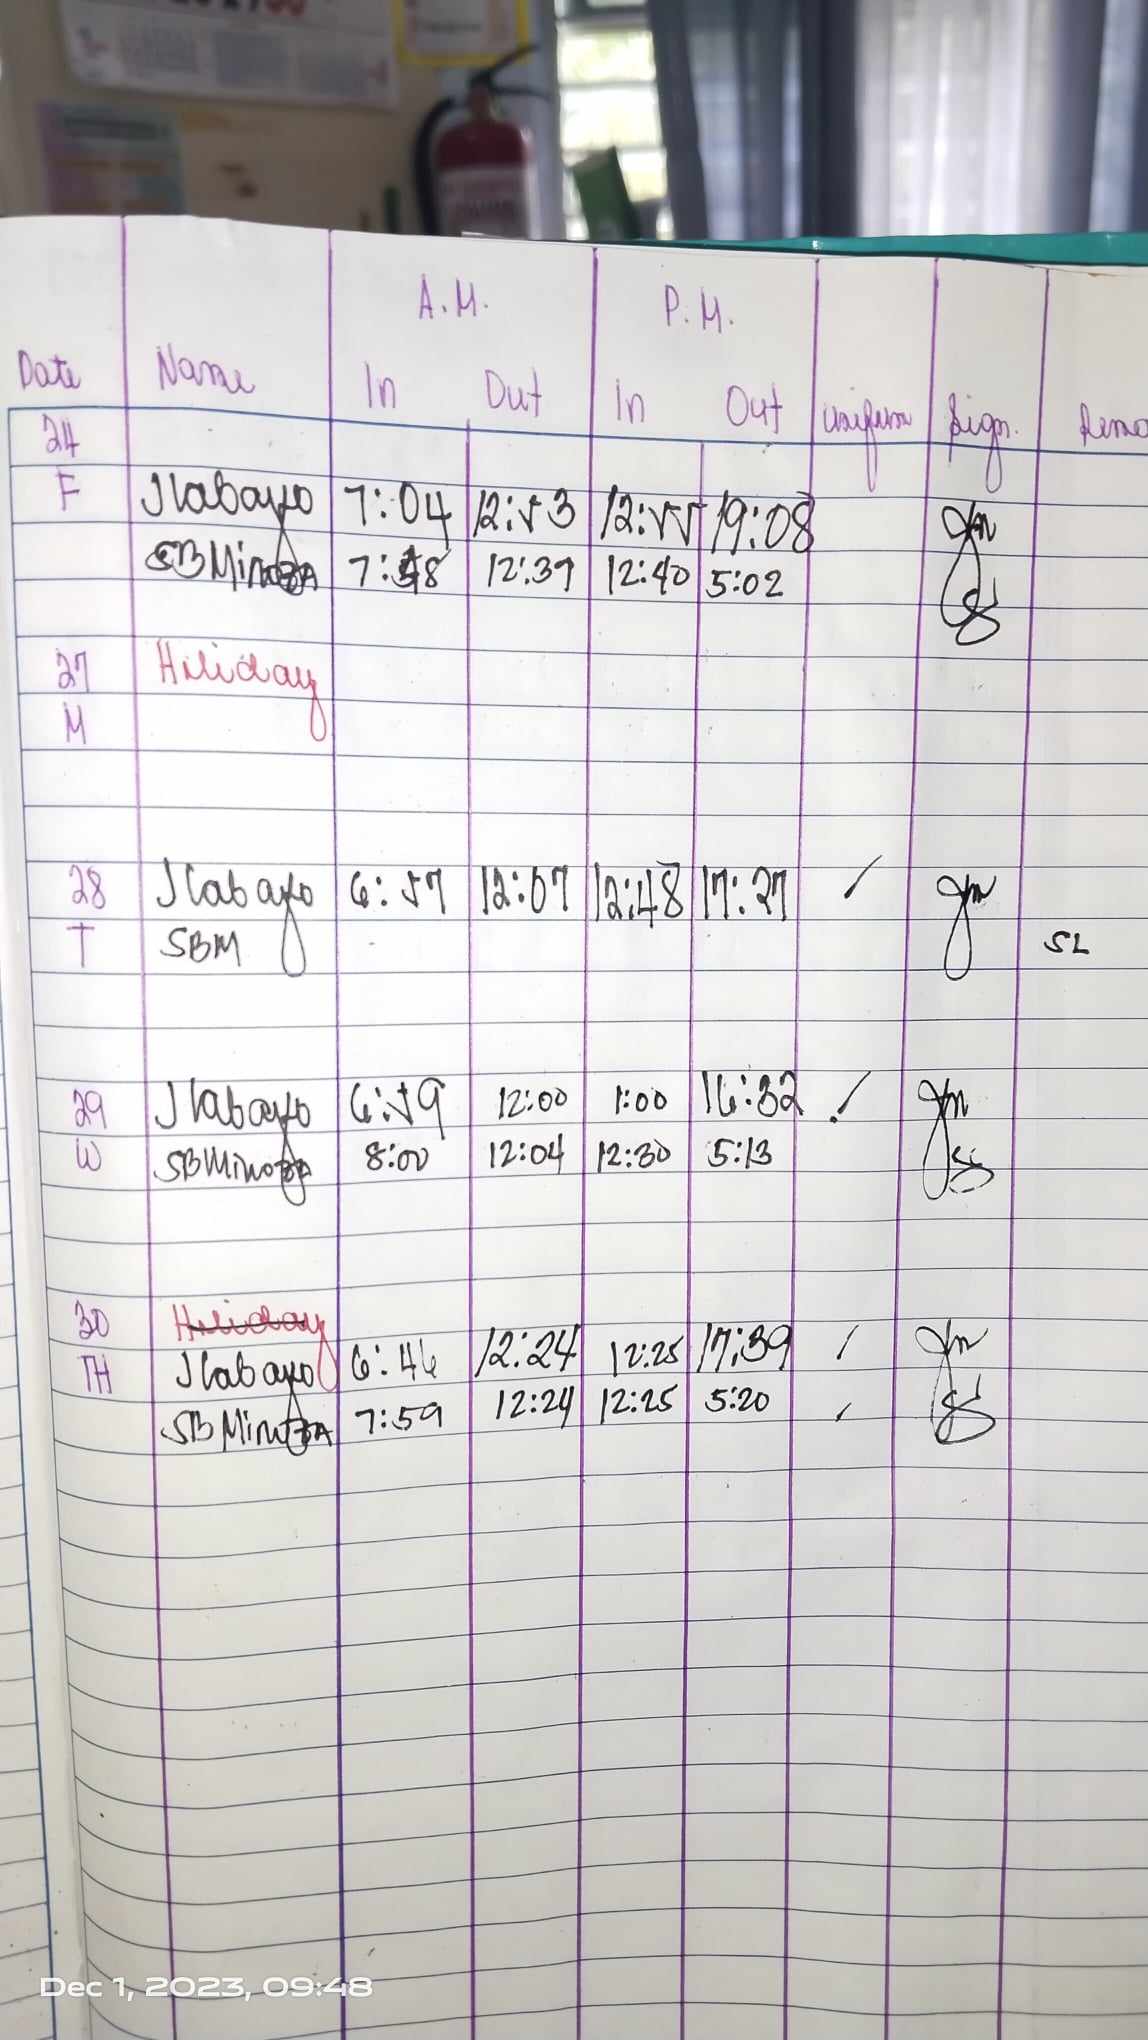 A.M. P.M.
Date Name In Out In Out Uniform Sign. Rema
24
F JLabayo 7:04 12:53 12:55 19:08
SBMinoza 7:58 12:39 12:40 5:02
27 Hiliday
M
28 JLabayo 6:57 12:07 12:48 17:27 /
T SBM SL
29 JLabayo 6:59 12:00 1:00 16:32 /
W SBMinoza 8:00 12:04 12:30 5:13
30 Hiliday
TH JLabayo 6:46 12:24 12:25 17:39 /
SBMinoza 7:59 12:24 12:25 5:20 /
Dec 1, 2023, 09:48